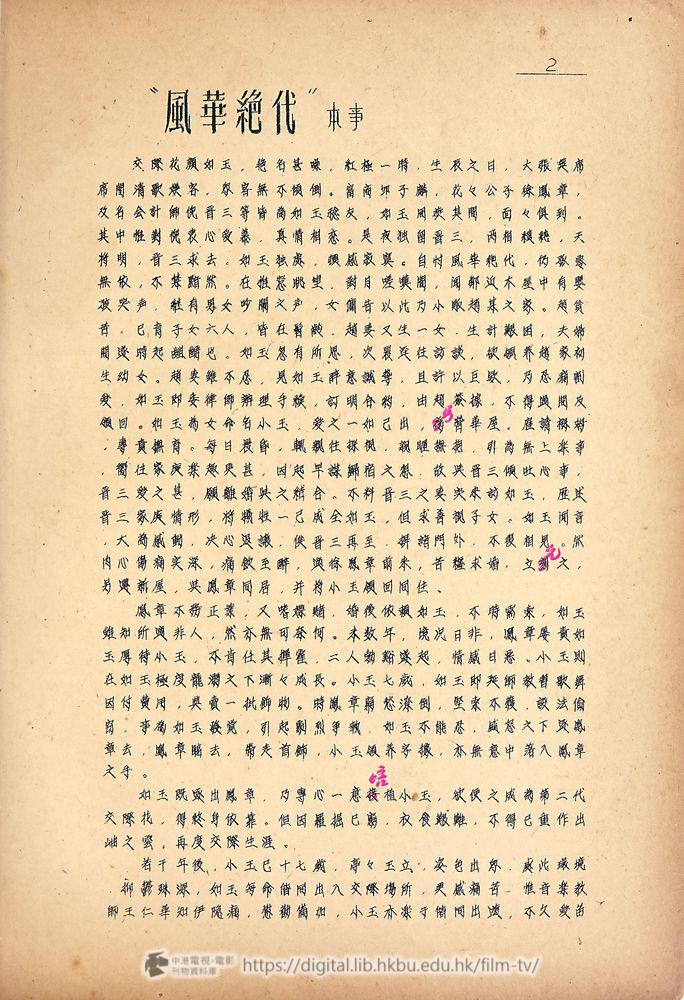 2
"風華絕代"本事
交際花顏如玉，艷名甚噪，紅極一時，生辰之日，大張筵席
席間清歌燕客，眾客無不傾倒。富商邱子麟，花々公子徐鳳章，
及名会計師倪晋三等皆為如玉稔友，如玉周旋其間，面々俱到。
其中惟對倪衷心愛慕，真情相恋。是夜独留晋三，两相繾綣，天
將明，晋三求去。如玉独處，頓感寂寞。自忖風華絕代，仍孤零
無依，不禁黯然。在惟窓眺望，對月嗟嘆間，闻鄰近木屋中有嬰
孩哭声，雜有男女吵闹之声，女傭告以此乃小販趙某之家。趙貧
苦，已育子女六人，皆在髫齡，趙妻又生一女，生計艱困，夫婦
間遂時起齟齬也。如玉忽有所思，次晨逕往訪談，欲領养趙家初
生幼女。趙妻雖不忍，見如玉辞意誠摯，且許以巨欵，乃忍痛割
愛，如玉即委律師辦理手續，訂明合約，由趙簽據，不得過問及
領回。如玉為女命名小玉，愛之一如己出，另營華屋，雇請褓姆
，專責撫育。每日晨昏，輒親往探視，親暱撫抱，引為無上樂事
，嚮往家庭樂趣更甚，因起早謀歸宿之想，故與晋三傾吐心事，
晋三愛之甚，願離婚與之結合。不料晋三之妻突來訪如玉，歷述
晋三家庭情形，將犧牲一己成全如玉，但求善視子女。如玉闻言
，大為感動，决心退讓，俟晋三再至，摒諸門外，不復相見。然
肉心傷痛实深，痛飲至醉，適徐鳳章前來，苦纏求婚，立允之，
另選新屋，與鳳章同居，并將小玉領回同住。
鳳章不務正業，又嗜嫖賭，婚後依賴如玉，不時需索，如玉
雖知所適非人，然亦無可奈何。未数年，境况日非，鳳章屡責如
玉厚待小玉，不肯任其揮霍，二人勃谿遂起，情感日惡。小玉則
在如玉極度寵溺之下漸々成長。小玉七歲，如玉即延師教習歌舞
因付費用，與賣一批飾物。時鳳章窮愁潦倒，堅索不獲，設法偷
竊，事為如玉發覺，引起劇烈爭執，如玉不能忍，盛怒之下逐鳳
章去，鳳章臨去，带走首飾，小玉領养字據，亦無意中落入鳳章
之手。
如玉既逐出鳳章，乃專心一意培植小玉，欲使之成為第二代
交際花，得終身依靠。但因羅掘已窮，衣食艱難，不得已重作出
岫之雲，再度交際生涯。
若干年後，小玉已十七歲，亭々玉立，姿色出众，處此環境
，抑鬱殊深，如玉每命偕同出入交際場所，更感痛苦。惟音樂教
師王仁華知伊隐痛，慰勸備加，小玉亦樂于偕同出遊，不久愛苗
中港電視·電影
刊物資料庫
https://digital.lib.hkbu.edu.hk/film-tv/